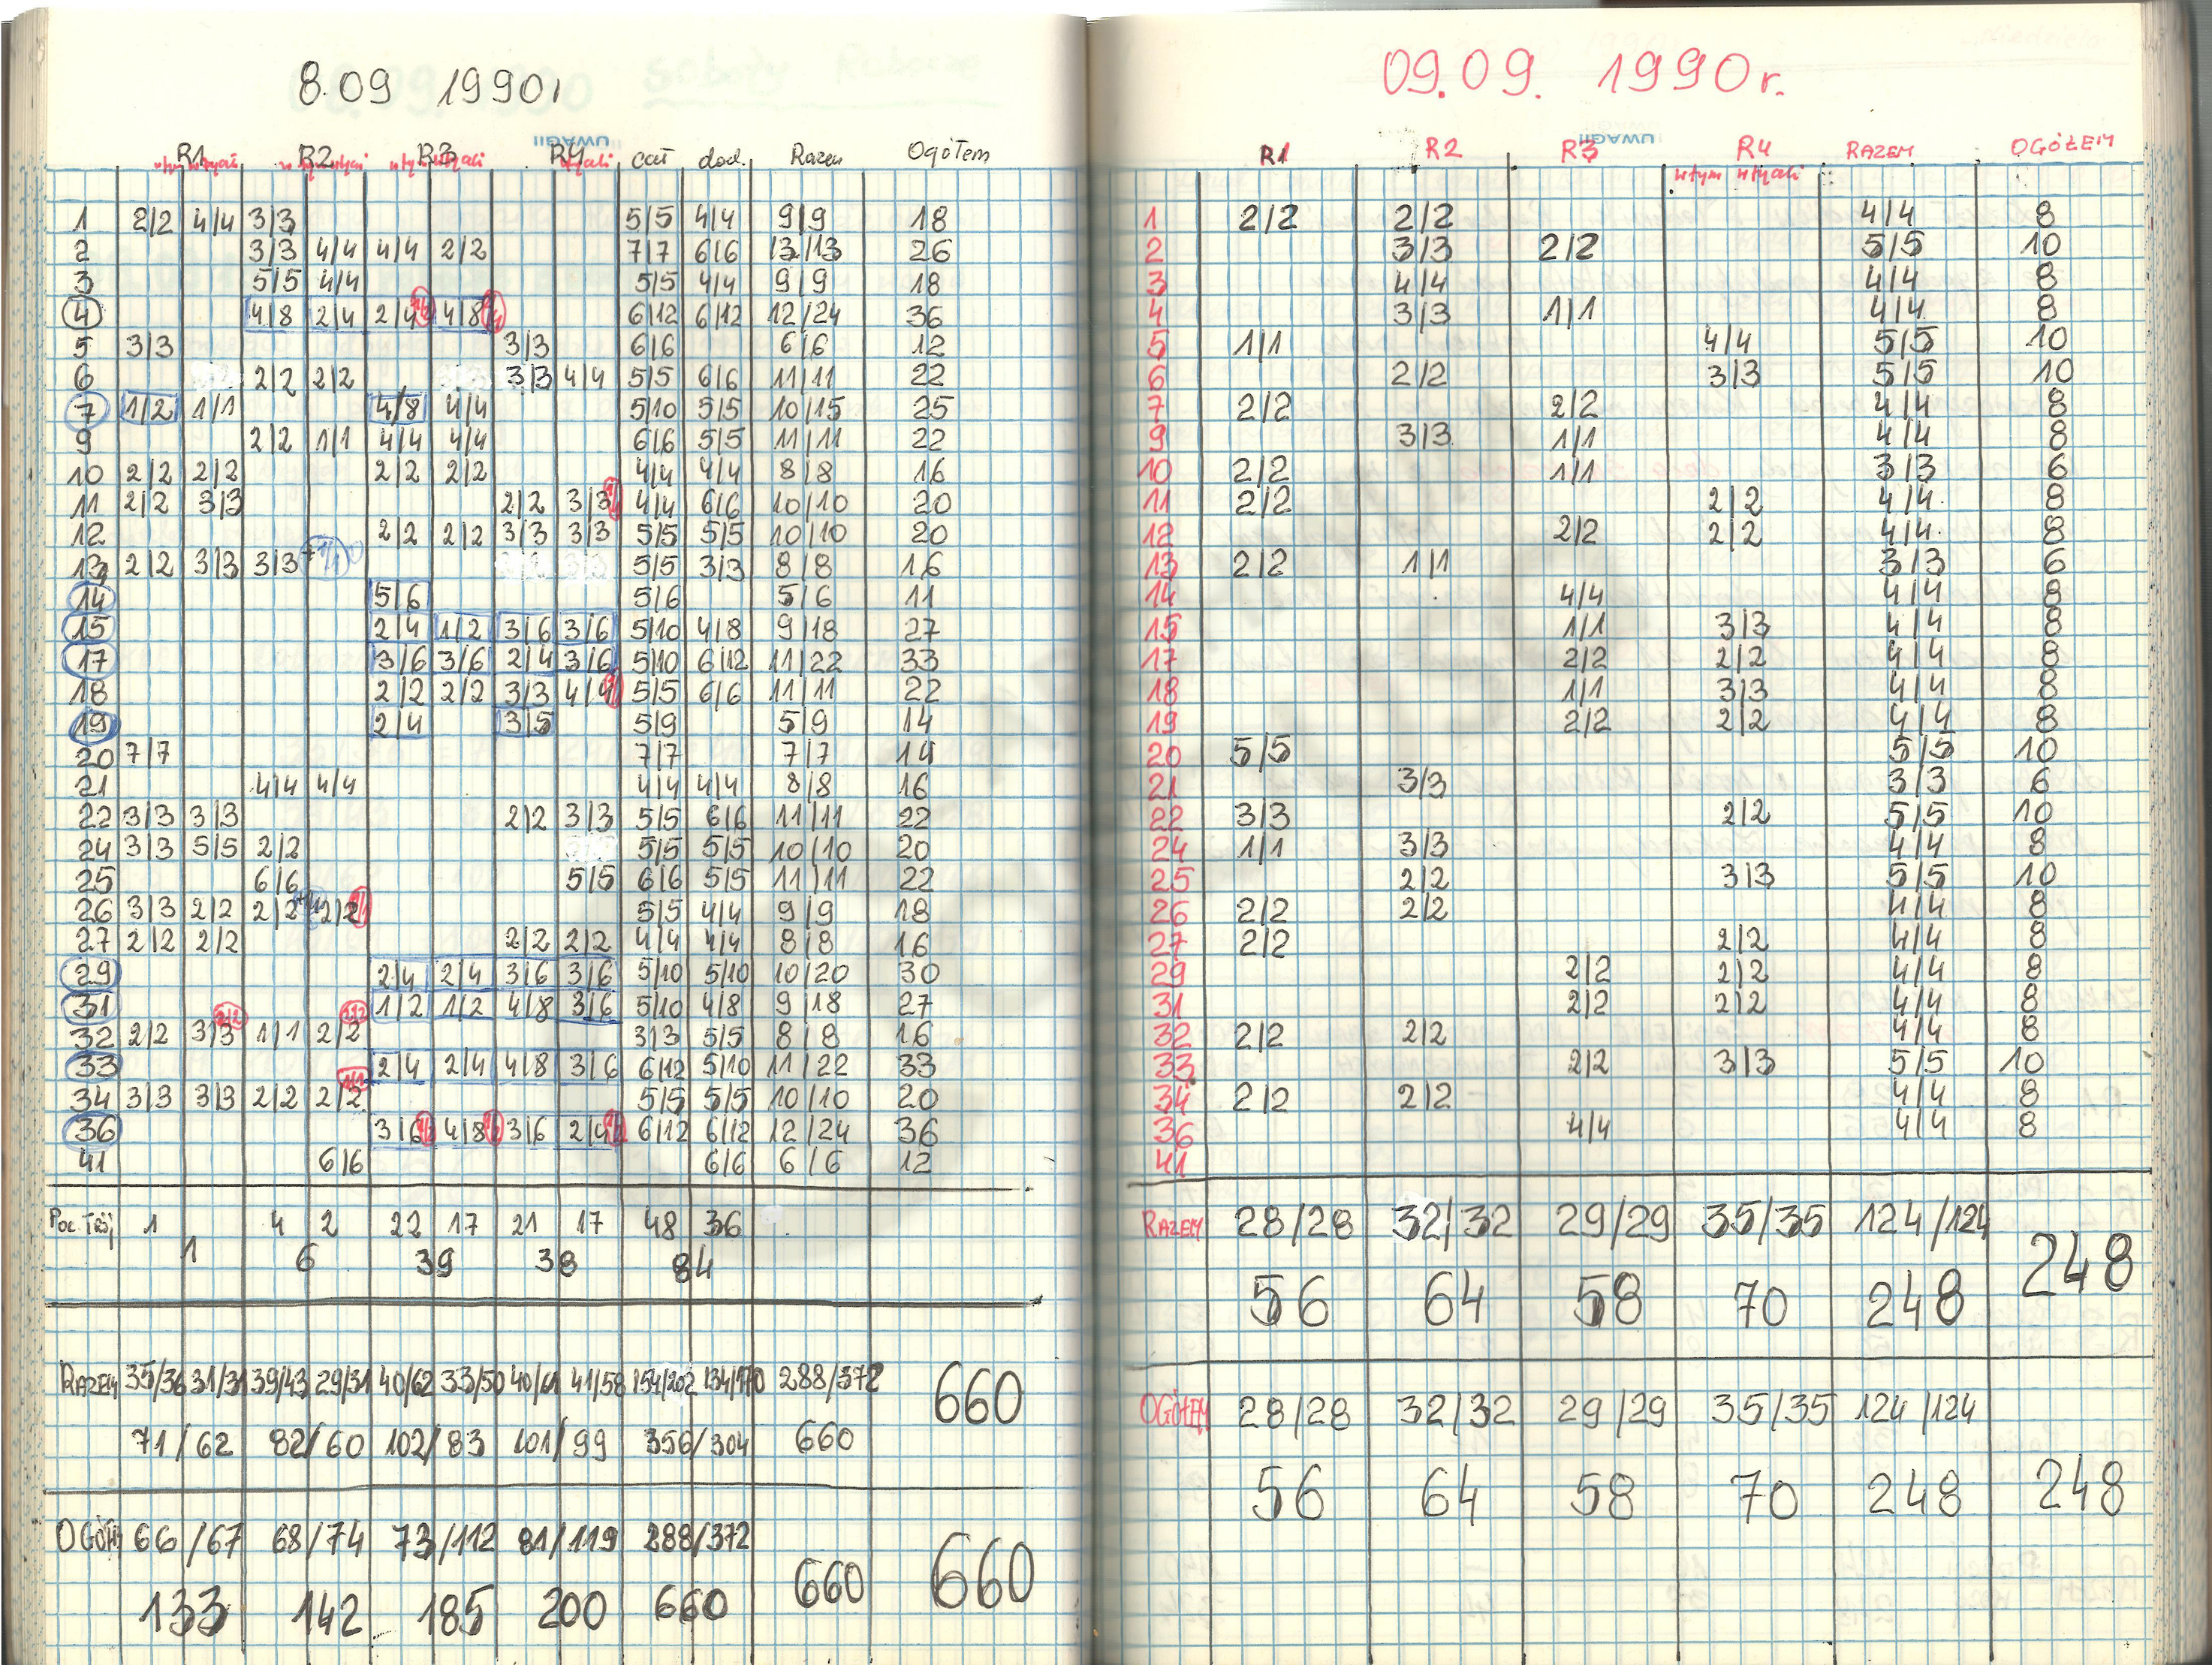 8.09 1990r
R1 R2 R3 R4 cał dod. Razem Ogółem
1 2/2 4/4 3/3 5/5 4/4 9/9 18
2 3/3 4/4 4/4 2/2 7/7 6/6 13/13 26
3 5/5 4/4 5/5 4/4 9/9 18
4 4/8 2/4 2/4 4/8 6/12 6/12 12/24 36
5 3/3 3/3 6/6 6/6 12
6 2/2 2/2 3/3 4/4 5/5 6/6 11/11 22
7 1/2 1/1 4/8 4/4 5/10 5/5 10/15 25
9 2/2 1/1 4/4 4/4 6/6 5/5 11/11 22
10 2/2 2/2 2/2 2/2 4/4 4/4 8/8 16
11 2/2 3/3 2/2 3/3 4/4 6/6 10/10 20
12 2/2 2/2 3/3 3/3 5/5 5/5 10/10 20
13 2/2 3/3 3/3 5/5 3/3 8/8 16
14 5/6 5/6 5/6 11
15 2/4 1/2 3/6 3/6 5/10 4/8 9/18 27
17 3/6 3/6 2/4 3/6 5/10 6/12 11/22 33
18 2/2 2/2 3/3 4/4 5/5 6/6 11/11 22
19 2/4 3/5 5/9 5/9 14
20 7/7 7/7 7/7 14
21 4/4 4/4 4/4 4/4 8/8 16
22 3/3 3/3 2/2 3/3 5/5 6/6 11/11 22
24 3/3 5/5 2/2 5/5 5/5 10/10 20
25 6/6 5/5 6/6 5/5 11/11 22
26 3/3 2/2 2/2 2/2 5/5 4/4 9/9 18
27 2/2 2/2 2/2 2/2 4/4 4/4 8/8 16
29 2/4 2/4 3/6 3/6 5/10 5/10 10/20 30
31 1/2 1/2 4/8 3/6 5/10 4/8 9/18 27
32 2/2 3/3 1/1 2/2 3/3 5/5 8/8 16
33 2/4 2/4 4/8 3/6 6/12 5/10 11/22 33
34 3/3 3/3 2/2 2/2 5/5 5/5 10/10 20
36 3/6 4/8 3/6 2/4 6/12 6/12 12/24 36
41 6/6 6/6 6/6 12
1 4 2 22 17 21 17 48 36
1 6 39 38 84
RAZEM 35/36 31/31 39/43 29/31 40/62 33/50 40/61 41/58 154/202 134/170 288/372 660
71/62 82/60 102/83 101/99 356/304 660
OGÓŁEM 66/67 68/74 73/112 81/119 288/372 660 660
133 142 185 200 660
09.09. 1990r.
UWAGI
R1 R2 R3 R4 RAZEM OGÓŁEM
1 2/2 2/2 4/4 8
2 3/3 2/2 5/5 10
3 4/4 4/4 8
4 3/3 1/1 4/4 8
5 1/1 4/4 5/5 10
6 2/2 3/3 5/5 10
7 2/2 2/2 4/4 8
9 3/3 1/1 4/4 8
10 2/2 1/1 3/3 6
11 2/2 2/2 4/4 8
12 2/2 2/2 4/4 8
13 2/2 1/1 3/3 6
14 4/4 4/4 8
15 1/1 3/3 4/4 8
17 2/2 2/2 4/4 8
18 1/1 3/3 4/4 8
19 2/2 2/2 4/4 8
20 5/5 5/5 10
21 3/3 3/3 6
22 3/3 2/2 5/5 10
24 1/1 3/3 4/4 8
25 2/2 3/3 5/5 10
26 2/2 2/2 4/4 8
27 2/2 2/2 4/4 8
29 2/2 2/2 4/4 8
31 2/2 2/2 4/4 8
32 2/2 2/2 4/4 8
33 2/2 3/3 5/5 10
34 2/2 2/2 4/4 8
36 4/4 4/4 8
41
RAZEM 28/28 32/32 29/29 35/35 124/124 248
56 64 58 70 248
OGÓŁEM 28/28 32/32 29/29 35/35 124/124
56 64 58 70 248 248